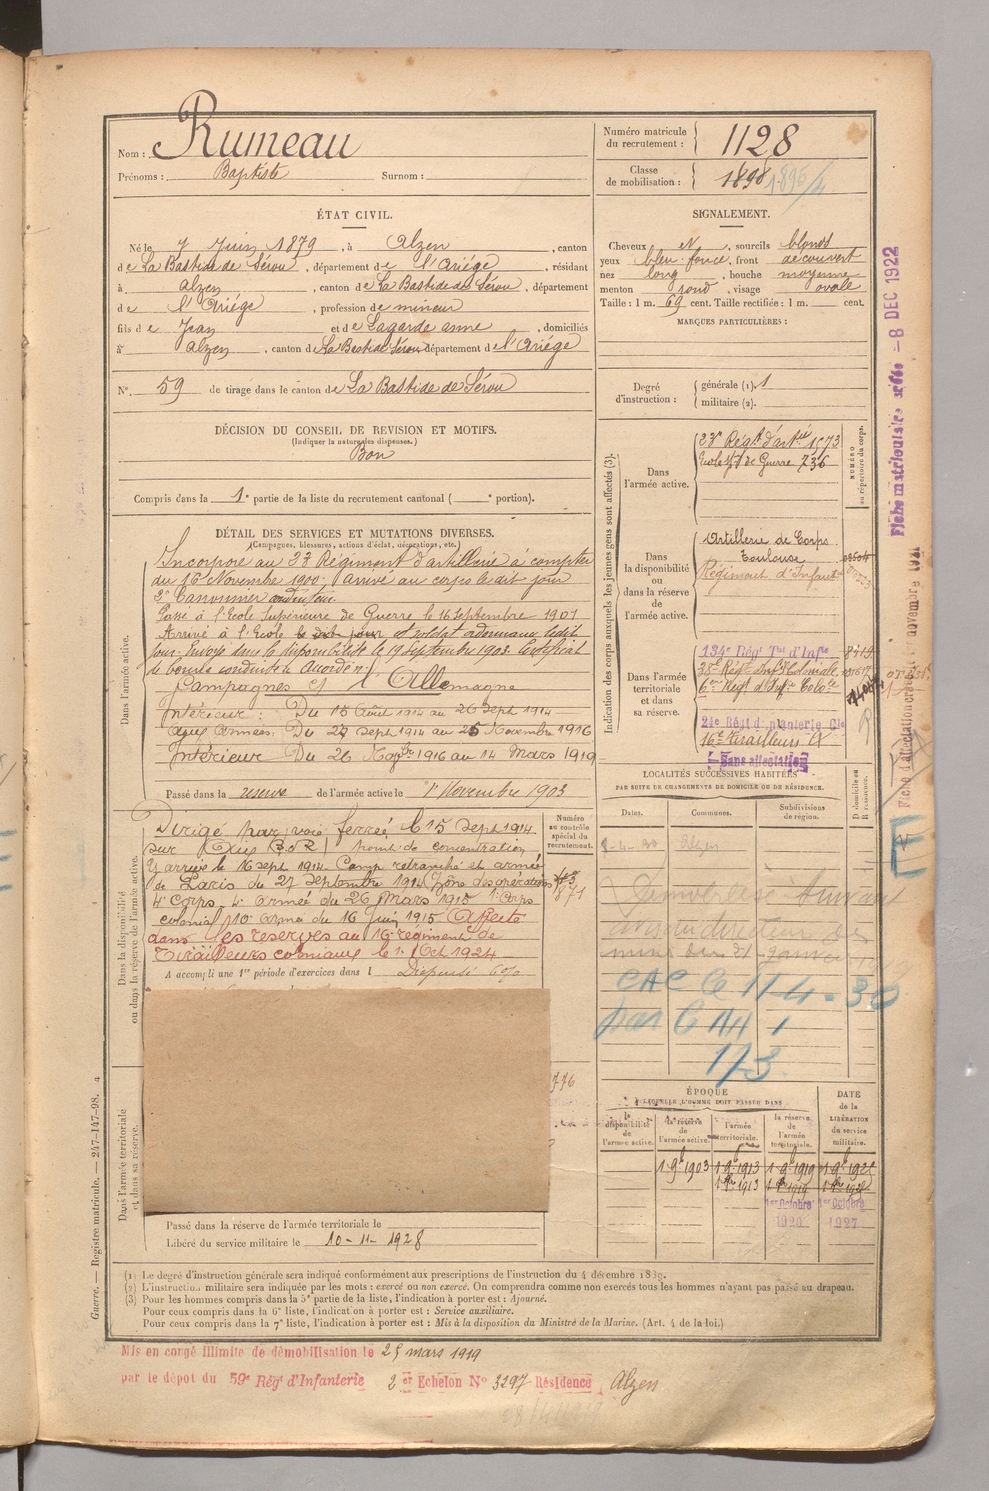 Nom : Rumeau
Prénoms : Baptiste Surnom :
Numéro matricule du recrutement : 1128
Classe de mobilisation : 1898 1896/4
ÉTAT CIVIL.
Né le 7 Juin 1879, à Alzen, canton
de La Bastide de Sérou, département de l'Ariège, résidant
à Alzen, canton de La Bastide de Sérou, département
de l'Ariège, profession de mineur
fils de Jean et de Lagarde anne, domiciliés
à Alzen, canton de La Bastide Sérou département de l'Ariège
N°. 59 de tirage dans le canton de La Bastide de Sérou
SIGNALEMENT.
Cheveux , sourcils blonds
yeux bleu foncé, front découvert
nez long, bouche moyenne
menton rond, visage ovale
Taille : 1 m. 69 cent. Taille rectifiée : 1 m. cent.
MARQUES PARTICULIÈRES :
Degré d'instruction : générale (1). 1
militaire (2).
DÉCISION DU CONSEIL DE REVISION ET MOTIFS.
(Indiquer la nature des dispenses.)
Bon
Compris dans la 1e partie de la liste du recrutement cantonal ( e portion).
DÉTAIL DES SERVICES ET MUTATIONS DIVERSES.
(Campagnes, blessures, actions d'éclat, décorations, etc.)
Dans l'armée active.
Incorporé au 23 Régiment d'artillerie à compter
du 16 Novembre 1900. Arrivé au corps le dit jour
2e Canonnier
Passé à l'Ecole Supérieure de Guerre le 16 septembre 1901
Arrivé à l'école le dit jour et soldat ordonnance ledit
jour. Envoyé dans la disponibilité le 19 septembre 1903. Certificat
de bonne conduite Accordé
Campagnes Ct l'Allemagne
Intérieur : Du 15 Août 1914 au 26 Sept 1914
Aux Armées, Du 27 Sept 1914 au 25 Novembre 1916
Intérieur Du 26 Novbre 1916 au 14 Mars 1919
Passé dans la réserve de l'armée active le 1er Novembre 1903
Dans la disponibilité ou dans la réserve de l'armée active.
Numéro au contrôle spécial du recrutement.
Dirigé par voie ferrée le 15 Sept 1914
sur (B.O.R) point de concentration
Y arrivé le 16 sept 1914. Camp retranché et armée
de Paris du 27 Septembre 1914 (Zone des opérations
4e Corps - 4e Armée du 26 Mars 1915 1er Corps
colonial 10e armée du 16 juin 1915 Affecté
dans les réserves au 16e régiment de
Tirailleurs coloniaux le 1er Oct 1924
871
A accompli une 1re période d'exercices dans l Dispensé
776
Dans l'armée territoriale et dans sa réserve.
Passé dans la réserve de l'armée territoriale le
Libéré du service militaire le 10-11-1928
Indication des corps auxquels les jeunes gens sont affectés (3).
NUMÉRO au répertoire du corps.
Dans l'armée active.
23e Régt d'artie 1573
Ecole Sre de Guerre 736
Dans la disponibilité ou dans la réserve de l'armée active.
Artillerie de Corps
Toulouse
Régiment d'Infant
Dans l'armée territoriale et dans sa réserve.
134e Régt Tal d'Infie
38e Régt Infie Coloniale
6e Régt d'Infie Colole
24e Régt d'infanterie Cle
16e Tirailleurs
Sans affectation
LOCALITÉS SUCCESSIVES HABITÉES
PAR SUITE DE CHANGEMENTS DE DOMICILE OU DE RÉSIDENCE.
Dates. Communes. Subdivisions de région. D domicile ou R résidence.
Alzen
CAC le 11-4-30
par C
173
ÉPOQUE
À LAQUELLE L'HOMME DOIT PASSER DANS
la disponibilité de l'armée active. la réserve de l'armée active. l'armée territoriale. la réserve de l'armée territoriale. DATE de la LIBÉRATION du service militaire.
1 9bre 1903 1 9bre 1913 1 9bre 1919
1er Octobre 1er Octobre
1920 1927
Fiche matriculaire créée -8 DEC 1922
(1) Le degré d'instruction générale sera indiqué conformément aux prescriptions de l'instruction du 4 décembre 1889.
(2) L'instruction militaire sera indiquée par les mots : exercé ou non exercé. On comprendra comme non exercés tous les hommes n'ayant pas passé au drapeau.
(3) Pour les hommes compris dans la 5e partie de la liste, l'indication à porter est : Ajourné.
Pour ceux compris dans la 6e liste, l'indication à porter est : Service auxiliaire.
Pour ceux compris dans la 7e liste, l'indication à porter est : Mis à la disposition du Ministre de la Marine. (Art. 4 de la loi.)
Guerre. — Registre matricule. — 247-147-98.
Mis en congé illimité de démobilisation le 25 mars 1919
par le dépot du 59e Régt d'Infanterie 2er Echelon N° 3297 Résidence Alzen